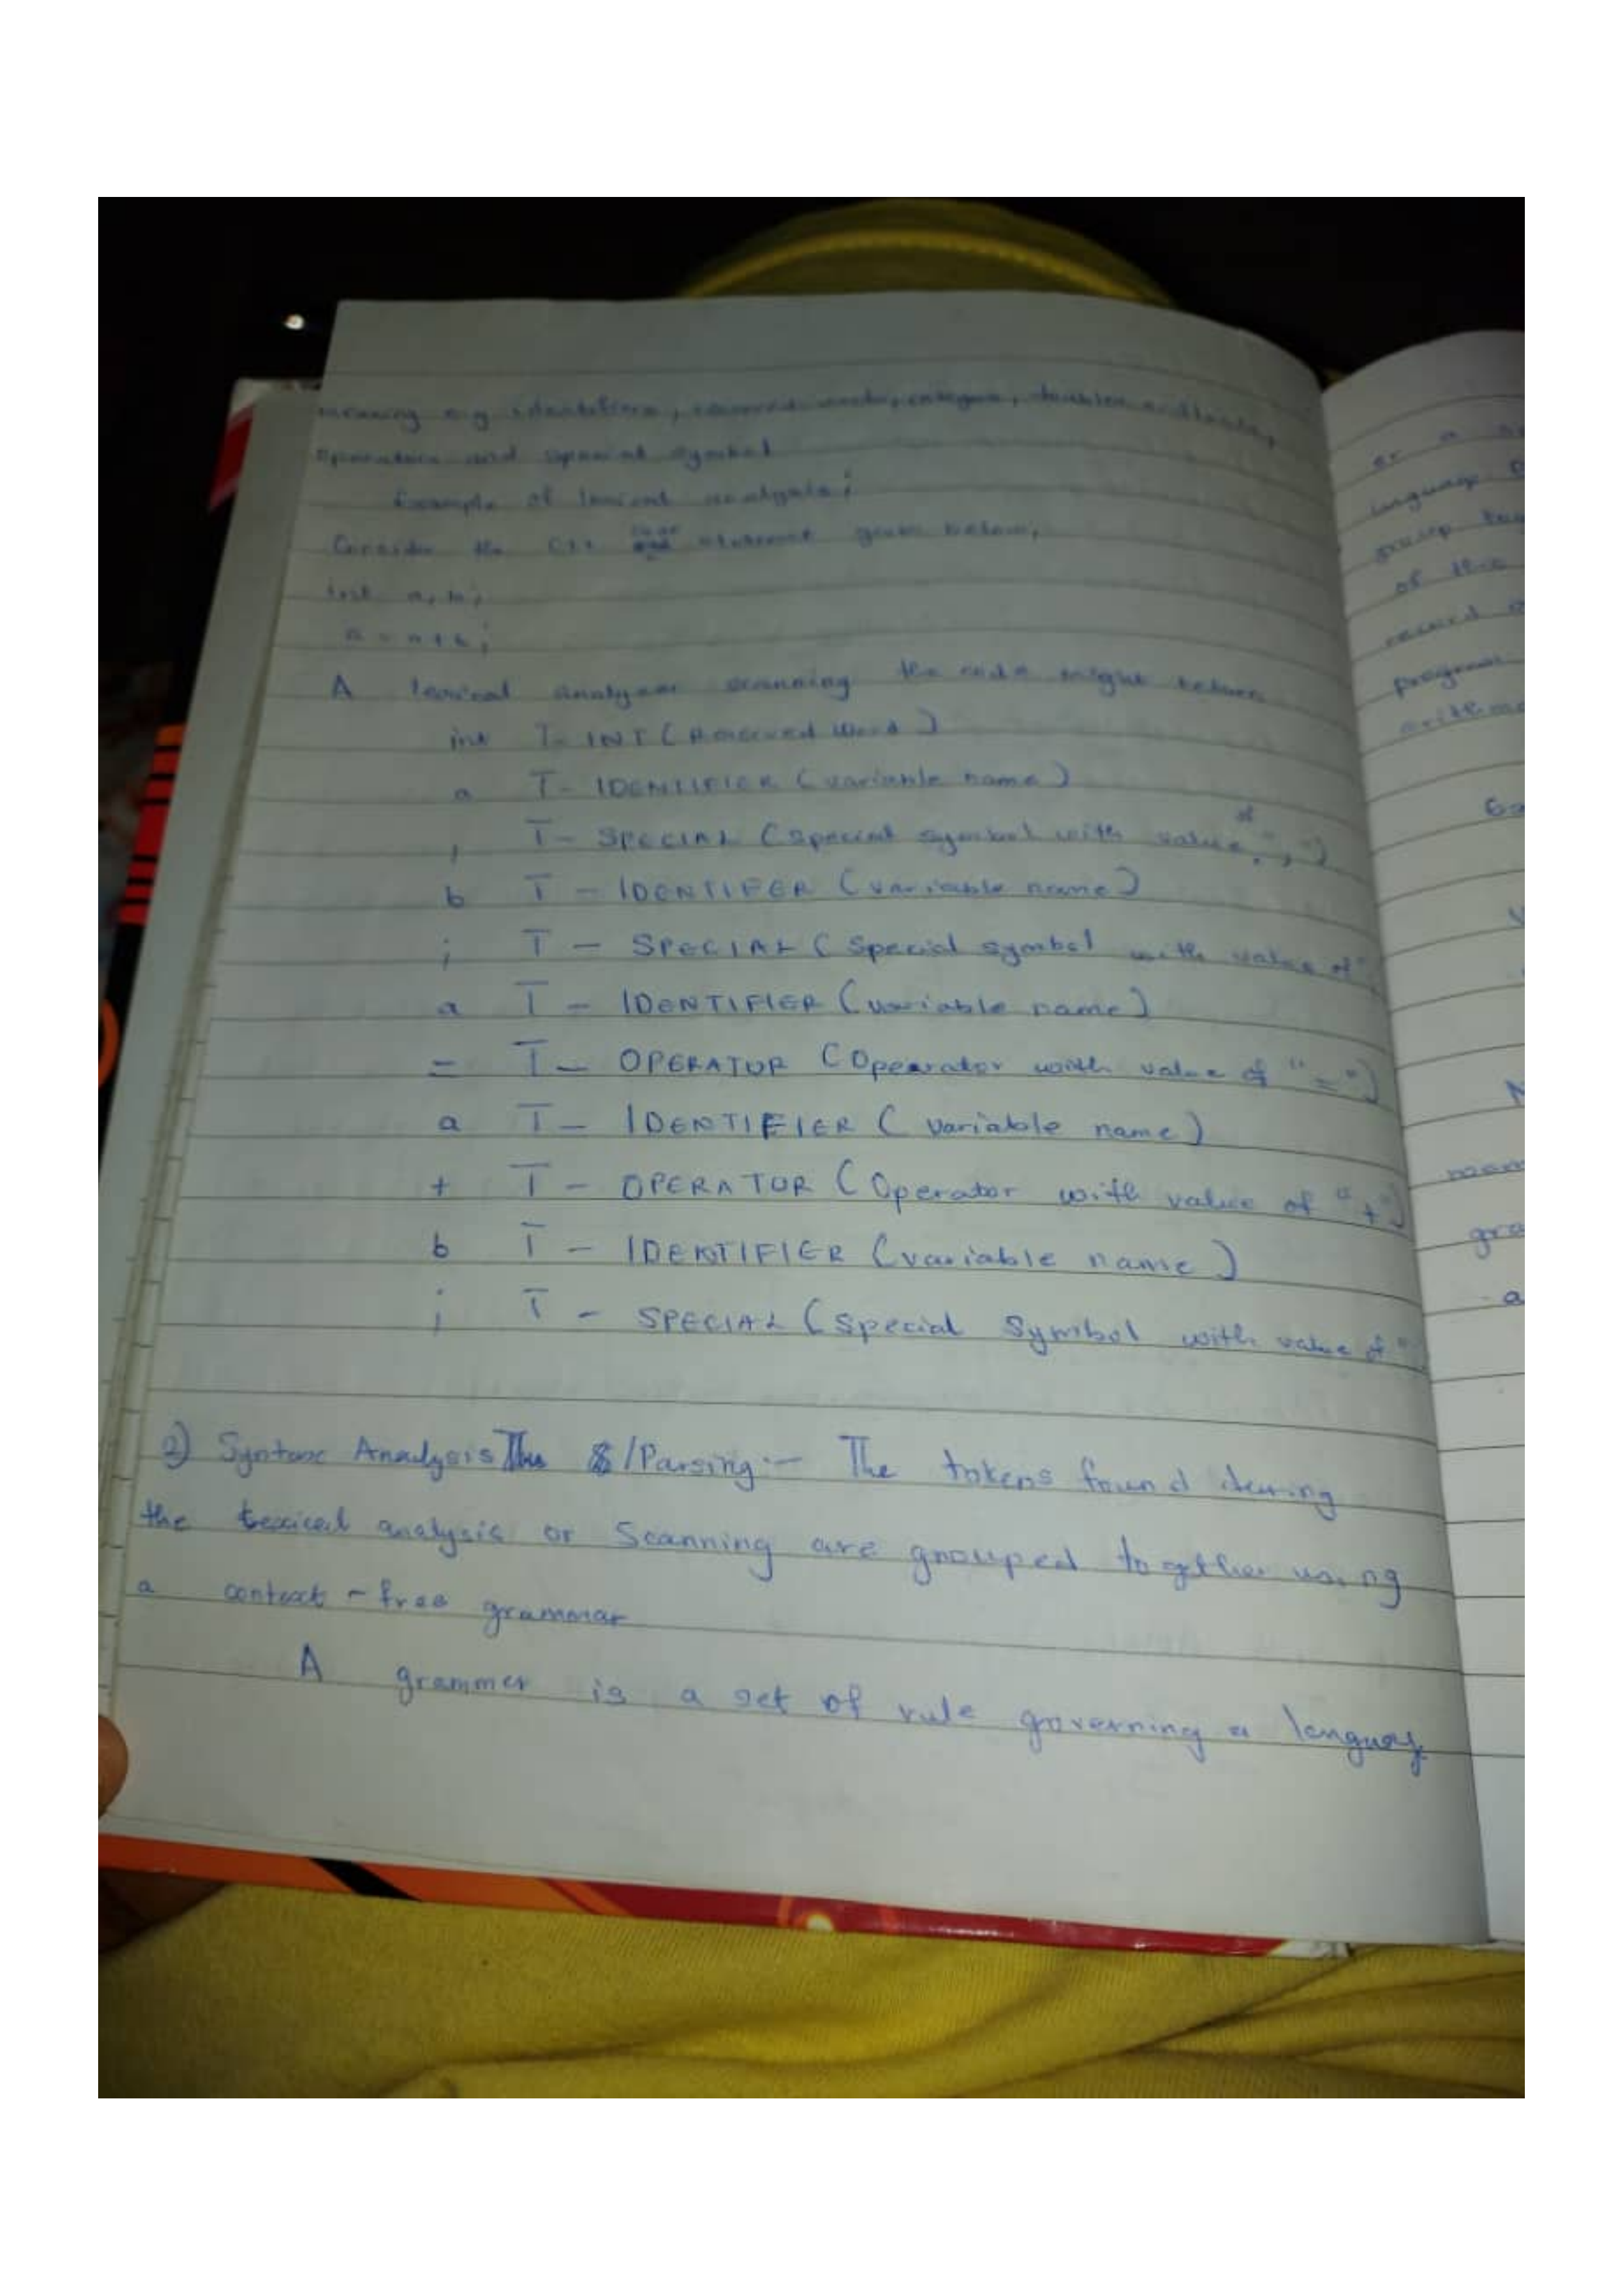 meaning e.g identifiers, reserved words, integers, doubles or floats,
operators and special symbol
Example of lexical analysis;
Consider the C++ code statement given below;
int a, b;
a = a + b;
A lexical analyzer scanning the code might return
int T- INT (Reserved Word)
a T- IDENTIFIER (variable name)
, T- SPECIAL (Special symbol with value of ",")
b T - IDENTIFER (variable name)
; T - SPECIAL (Special symbol with value of "
a T - IDENTIFIER (variable name)
= T - OPERATOR (Opearator with value of "=")
a T - IDENTIFIER (variable name)
+ T - OPERATOR (Operator with value of "+")
b T - IDENTIFIER (variable name)
; T - SPECIAL (Special Symbol with value of "
2) Syntax Analysis The /Parsing:- The tokens found during
the lexical analysis or Scanning are grouped together using
a context - free grammar
A grammer is a set of rule governing a language
or a
language
group
of the
record
program
Ea
V
N
gra
a